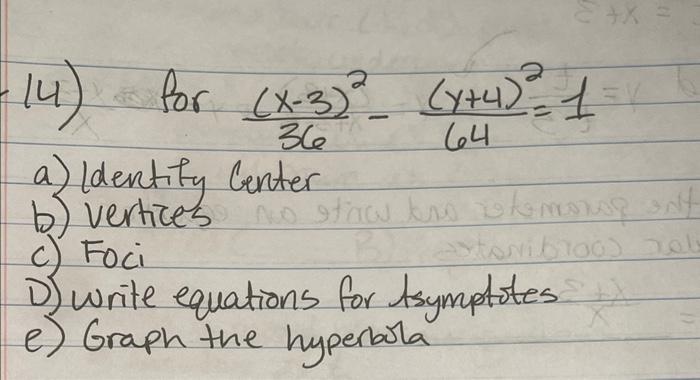 14) for (x-3)²/36 - (y+4)²/64 = 1
a) Identify Center
b) vertices
c) Foci
D) write equations for Asymptotes
e) Graph the hyperbola